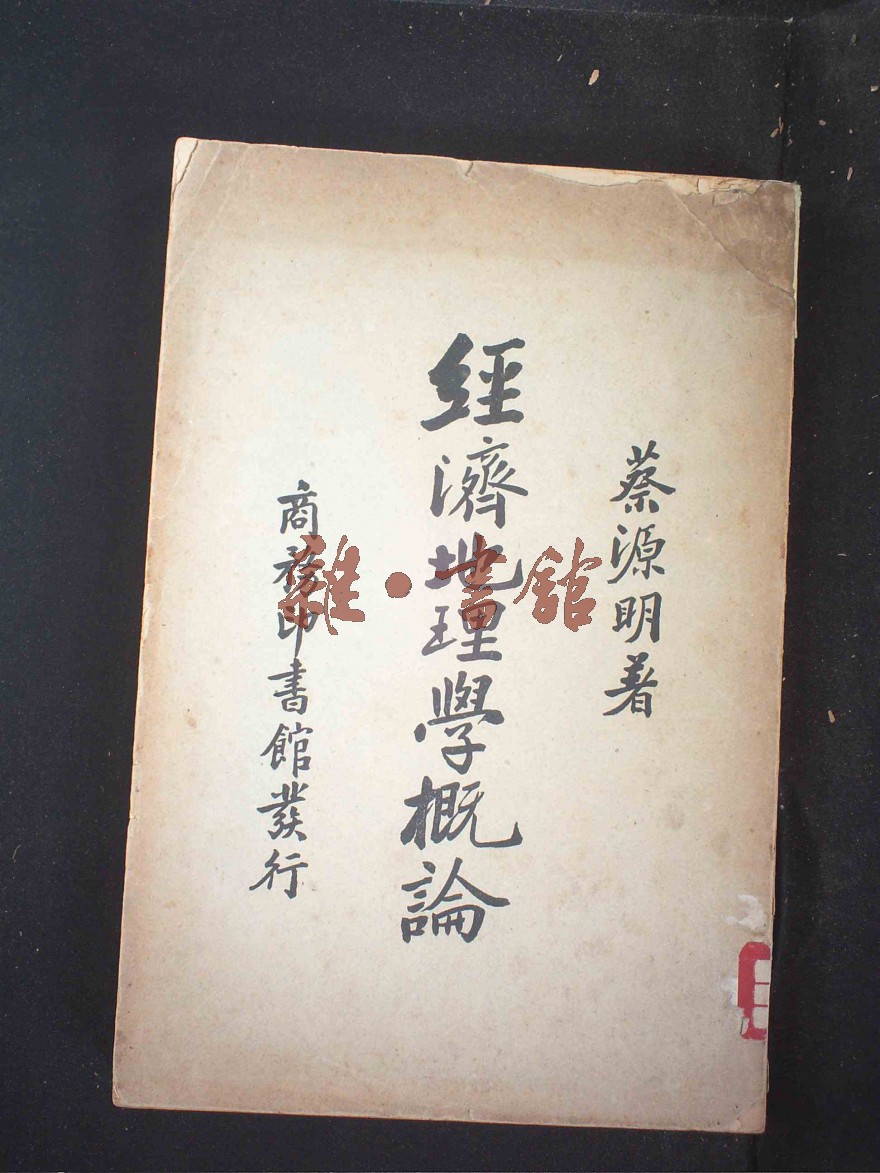 蔡源明著
經濟地理學概論
商務印書館發行
雜·書館